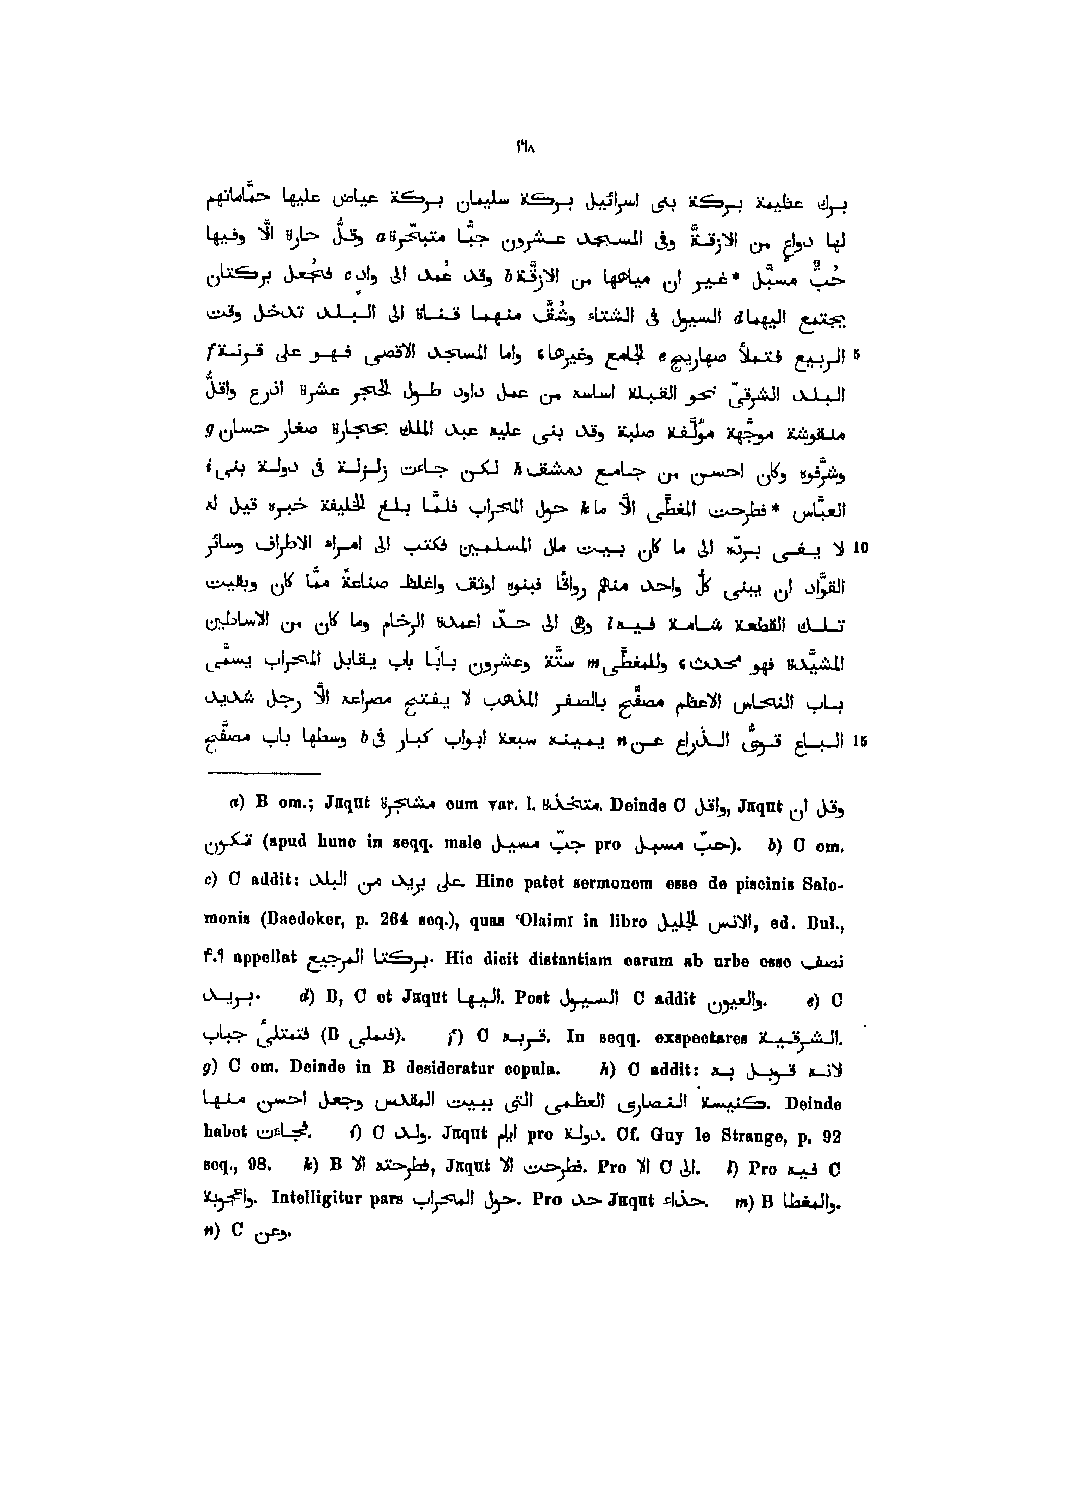 ١٦٨
برك عظيمة بركة بنى اسرائيل بركة سليمان بركة عياض عليها حمّاماتهم
لها دواعٍ من الازقّة وفى المسجد عشرون جبّا متبحّرة a وقلّ حارة الّا وفيها
حُبّ مسبّل *غير ان مياهها من الازقّة b وقد عُمد الى وادٍ c فجُعل بركتان
يجتمع اليهما d السيول فى الشتاء وشُقّ منهما قناة الى البلد تدخل وقت
5 الربيع فتملأ صهاريج e الجامع وغيرها، واما المسجد الاقصى فهو على قرنة f
البلد الشرقىّ نحو القبلة اساسه من عمل داود طول الحجر عشرة اذرع واقلّ
منقوشة موجّهة مؤلّفة صلبة وقد بنى عليه عبد الملك بحجارة صغار حسان g
وشرّفوه وكان احسن من جامع دمشق h لكن جاءت زلزلة فى دولة بنى i
العبّاس *فطرحت المغطّى الّا ما k حول المحراب فلمّا بلغ الخليفة خبره قيل له
10 لا يفى بردّه الى ما كان بيت مال المسلمين فكتب الى امراء الاطراف وسائر
القوّاد ان يبنى كلّ واحد منهم رواقا فبنوه اوثق واغلظ صناعةً ممّا كان وبقيت
تلك القطعة شامة فيه l وهى الى حدّ اعمدة الرخام وما كان من الاساطين
المشيّدة فهو محدث، وللمغطّى m ستّة وعشرون بابًا باب يقابل المحراب يسمّى
باب النحاس الاعظم مصفّح بالصفر المذهب لا يفتح مصراعه الّا رجل شديد
15 الباع قوىّ الذراع عن n يمينه سبعة ابواب كبار فى b وسطها باب مصفّح
a) B om.; Jaqut مشاجرة cum var. l. متخذة. Deinde C واقل, Jaqut وقل ان
تكون (apud hunc in seqq. male جبّ مسيل pro حبّ مسبل). b) C om.
c) C addit: على بريد من البلد. Hinc patet sermonem esse de piscinis Salo-
monis (Baedeker, p. 264 seq.), quas ‘Olaimî in libro الانس الجليل, ed. Bul.,
٤٠٩ appellat بركتا المرجيع. Hic dicit distantiam earum ab urbe esse نصف
بريد. d) B, C et Jaqut اليها. Post السيول C addit والعيون. e) C
فتمتلئ جباب (B فتملى). f) C قربه. In seqq. exspectares الشرقية.
g) C om. Deinde in B desideratur copula. h) C addit: لانه قوبل به
كنيسة النصارى العظمى التى ببيت المقدس وجعل احسن منها. Deinde
habet فجاءت. i) C ولد. Jaqut ايام pro دولة. Cf. Guy le Strange, p. 92
seq., 98. k) B فطرحته الا, Jaqut فطرحت الا. Pro الا C الى. l) Pro فيه C
والجوبة. Intelligitur pars حول المحراب. Pro حد Jaqut حذاء. m) B والمغطا.
n) C وعن.